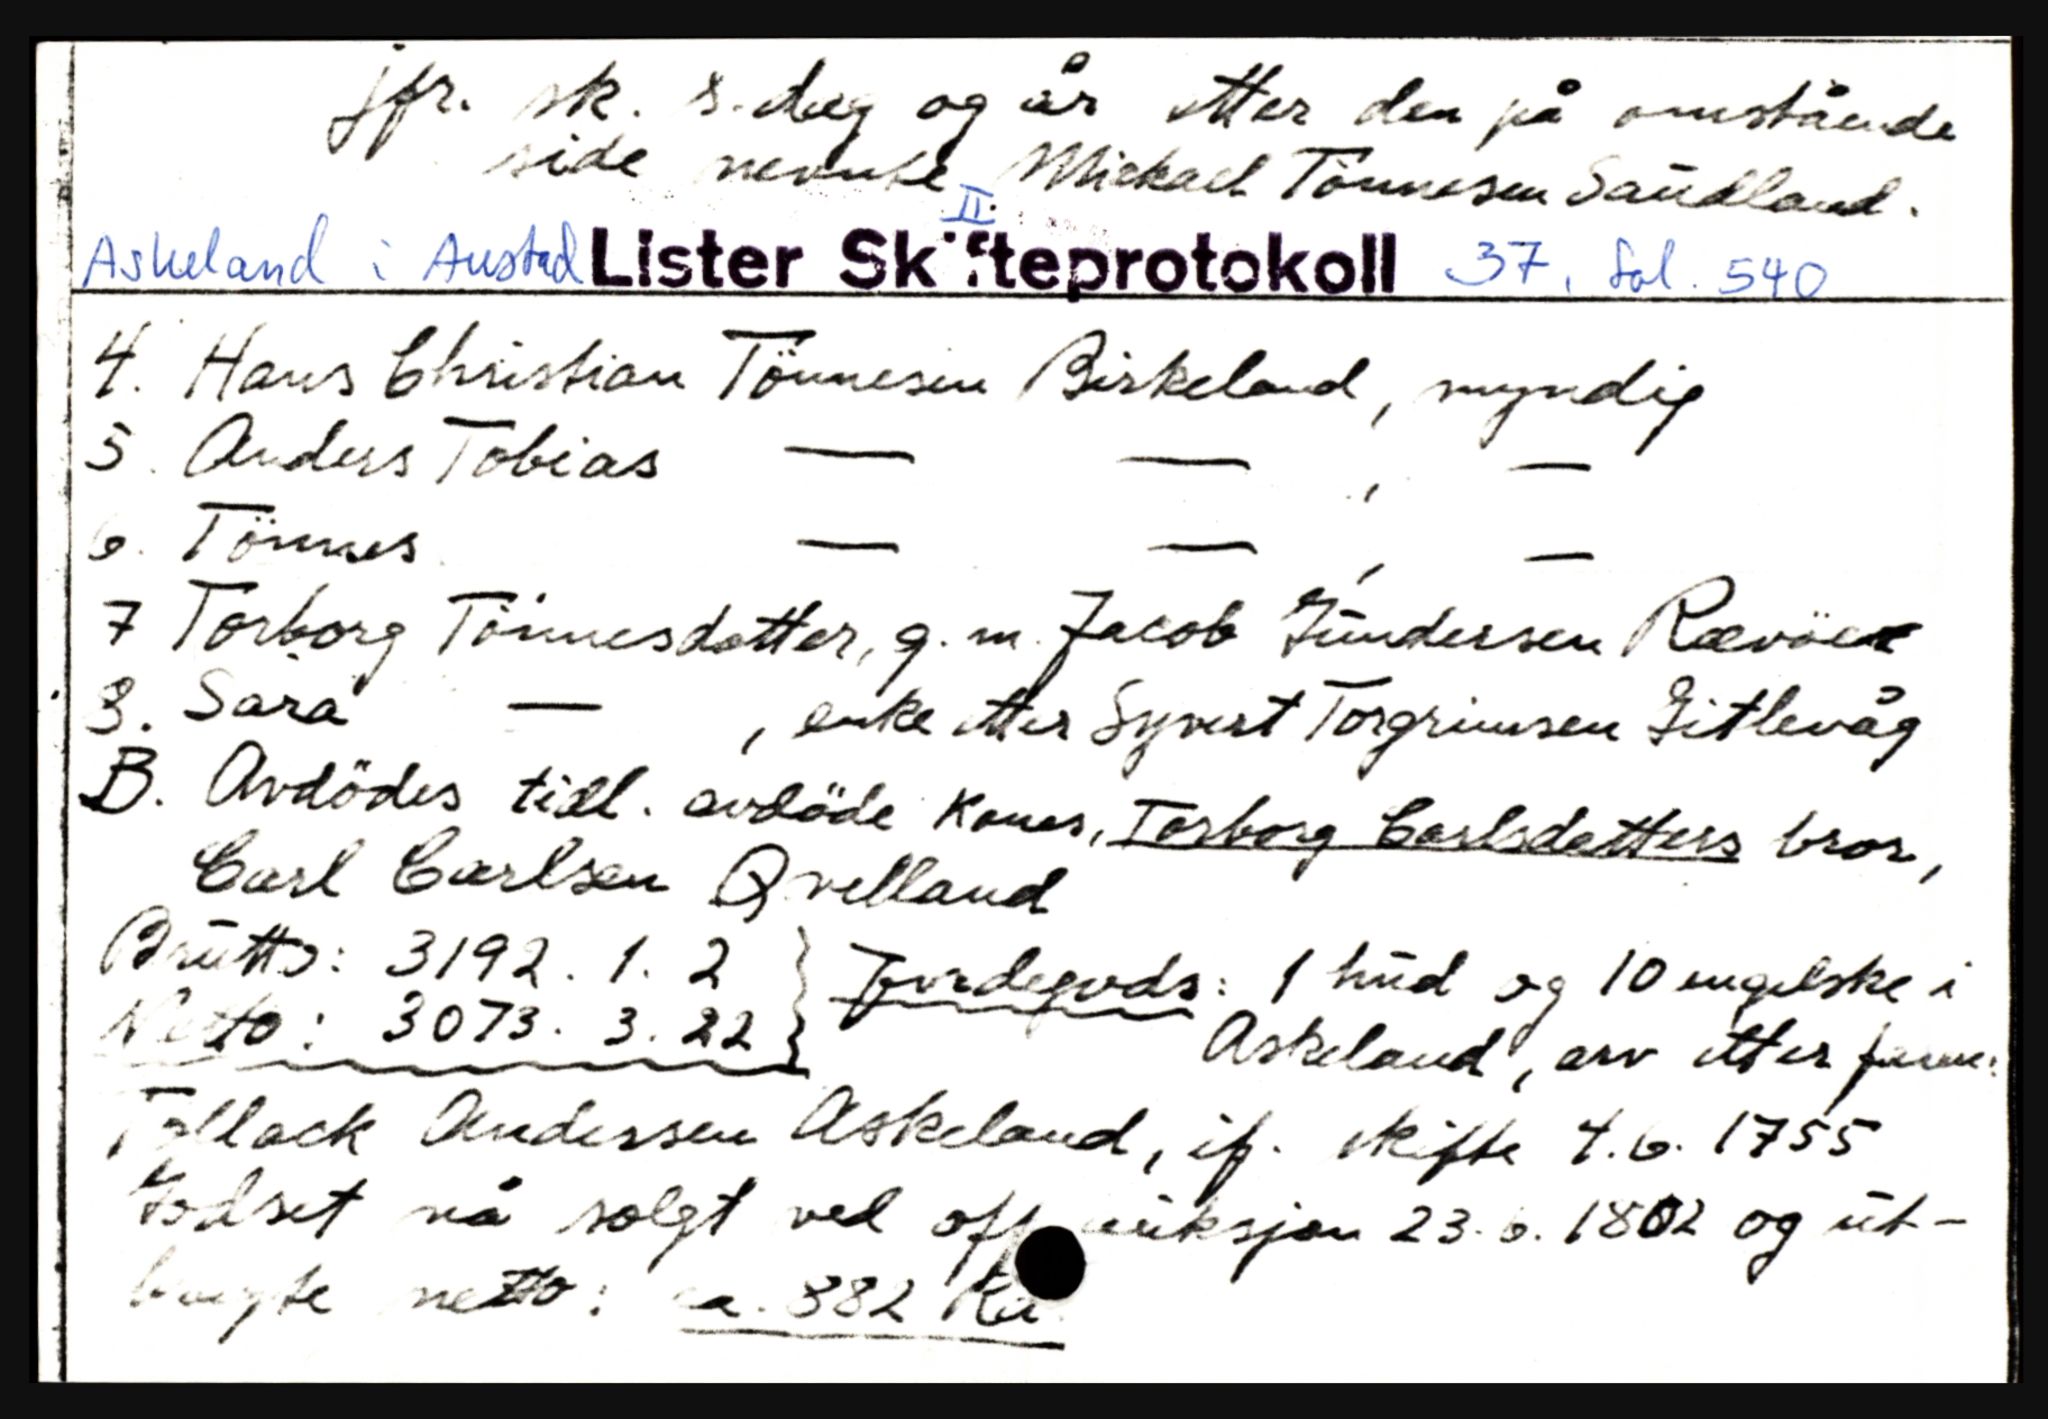 jfr. sk. s. dag og år etter den på omstående
side nevnte Mickael Tönnesen Saudland.
II.
Askeland i Austad Lister Skifteprotokoll 37, fol. 540
4. Hans Christian Tönnesen Birkeland, myndig
5. Anders Tobias — — , —
6. Tönnes — — , —
7 Torborg Tönnesdatter, g. m. Jacob Gundersen Rævöen
8. Sara — , enke etter Syvert Torgrimsen Gitlevåg
B. Avdödes tidl. avdöde kones, Torborg Carlsdatters bror,
Carl Carlsen Qvelland
Brutto: 3192. 1. 2 } Jordegods: 1 hud og 10 engelske i
Netto: 3073. 3. 22 } Askeland, arv etter faren:
Tollack Andersen Askeland, if. skifte 4.6. 1755
Godset nå solgt ved off auksjon 23.6. 1802 og ut-
bragte netto: ca. 882 Rd.